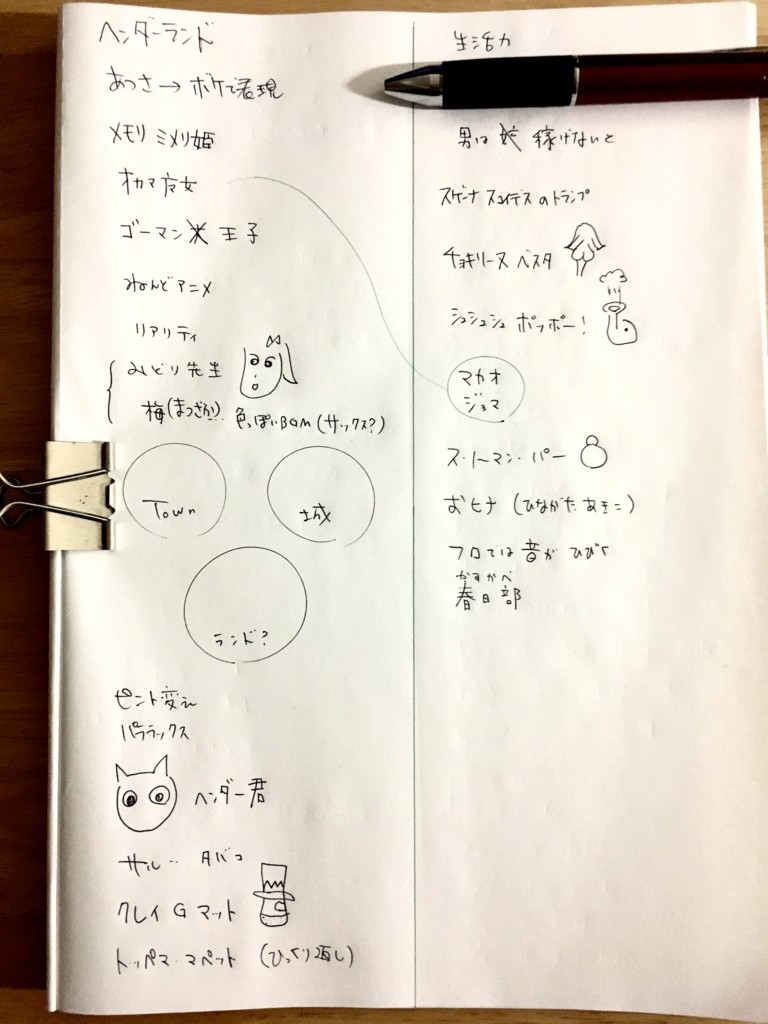 ヘンダーランド
あつさ→ボケで表現
メモリ ミメリ姫
オカマ魔女
ゴーマン 王子
ねんどアニメ
リアリティ
みどり先生
梅(まつざか) 色っぽいBGM(サックス?)
Town
城
ランド?
ピント変え
パララックス
ヘンダー君
サル‥ タバコ
クレイGマット
トッペマ・マペット (ひっくり返し)
生活力
男は 稼げないと
スゲーナ スゴイデスのトランプ
チョキリーヌ ベスタ
シュシュシュ ポッポー!
マカオ
ジョマ
ス・ノーマン・パー
おヒナ (ひながたあきこ)
フロでは音がひびく
かすかべ
春日部